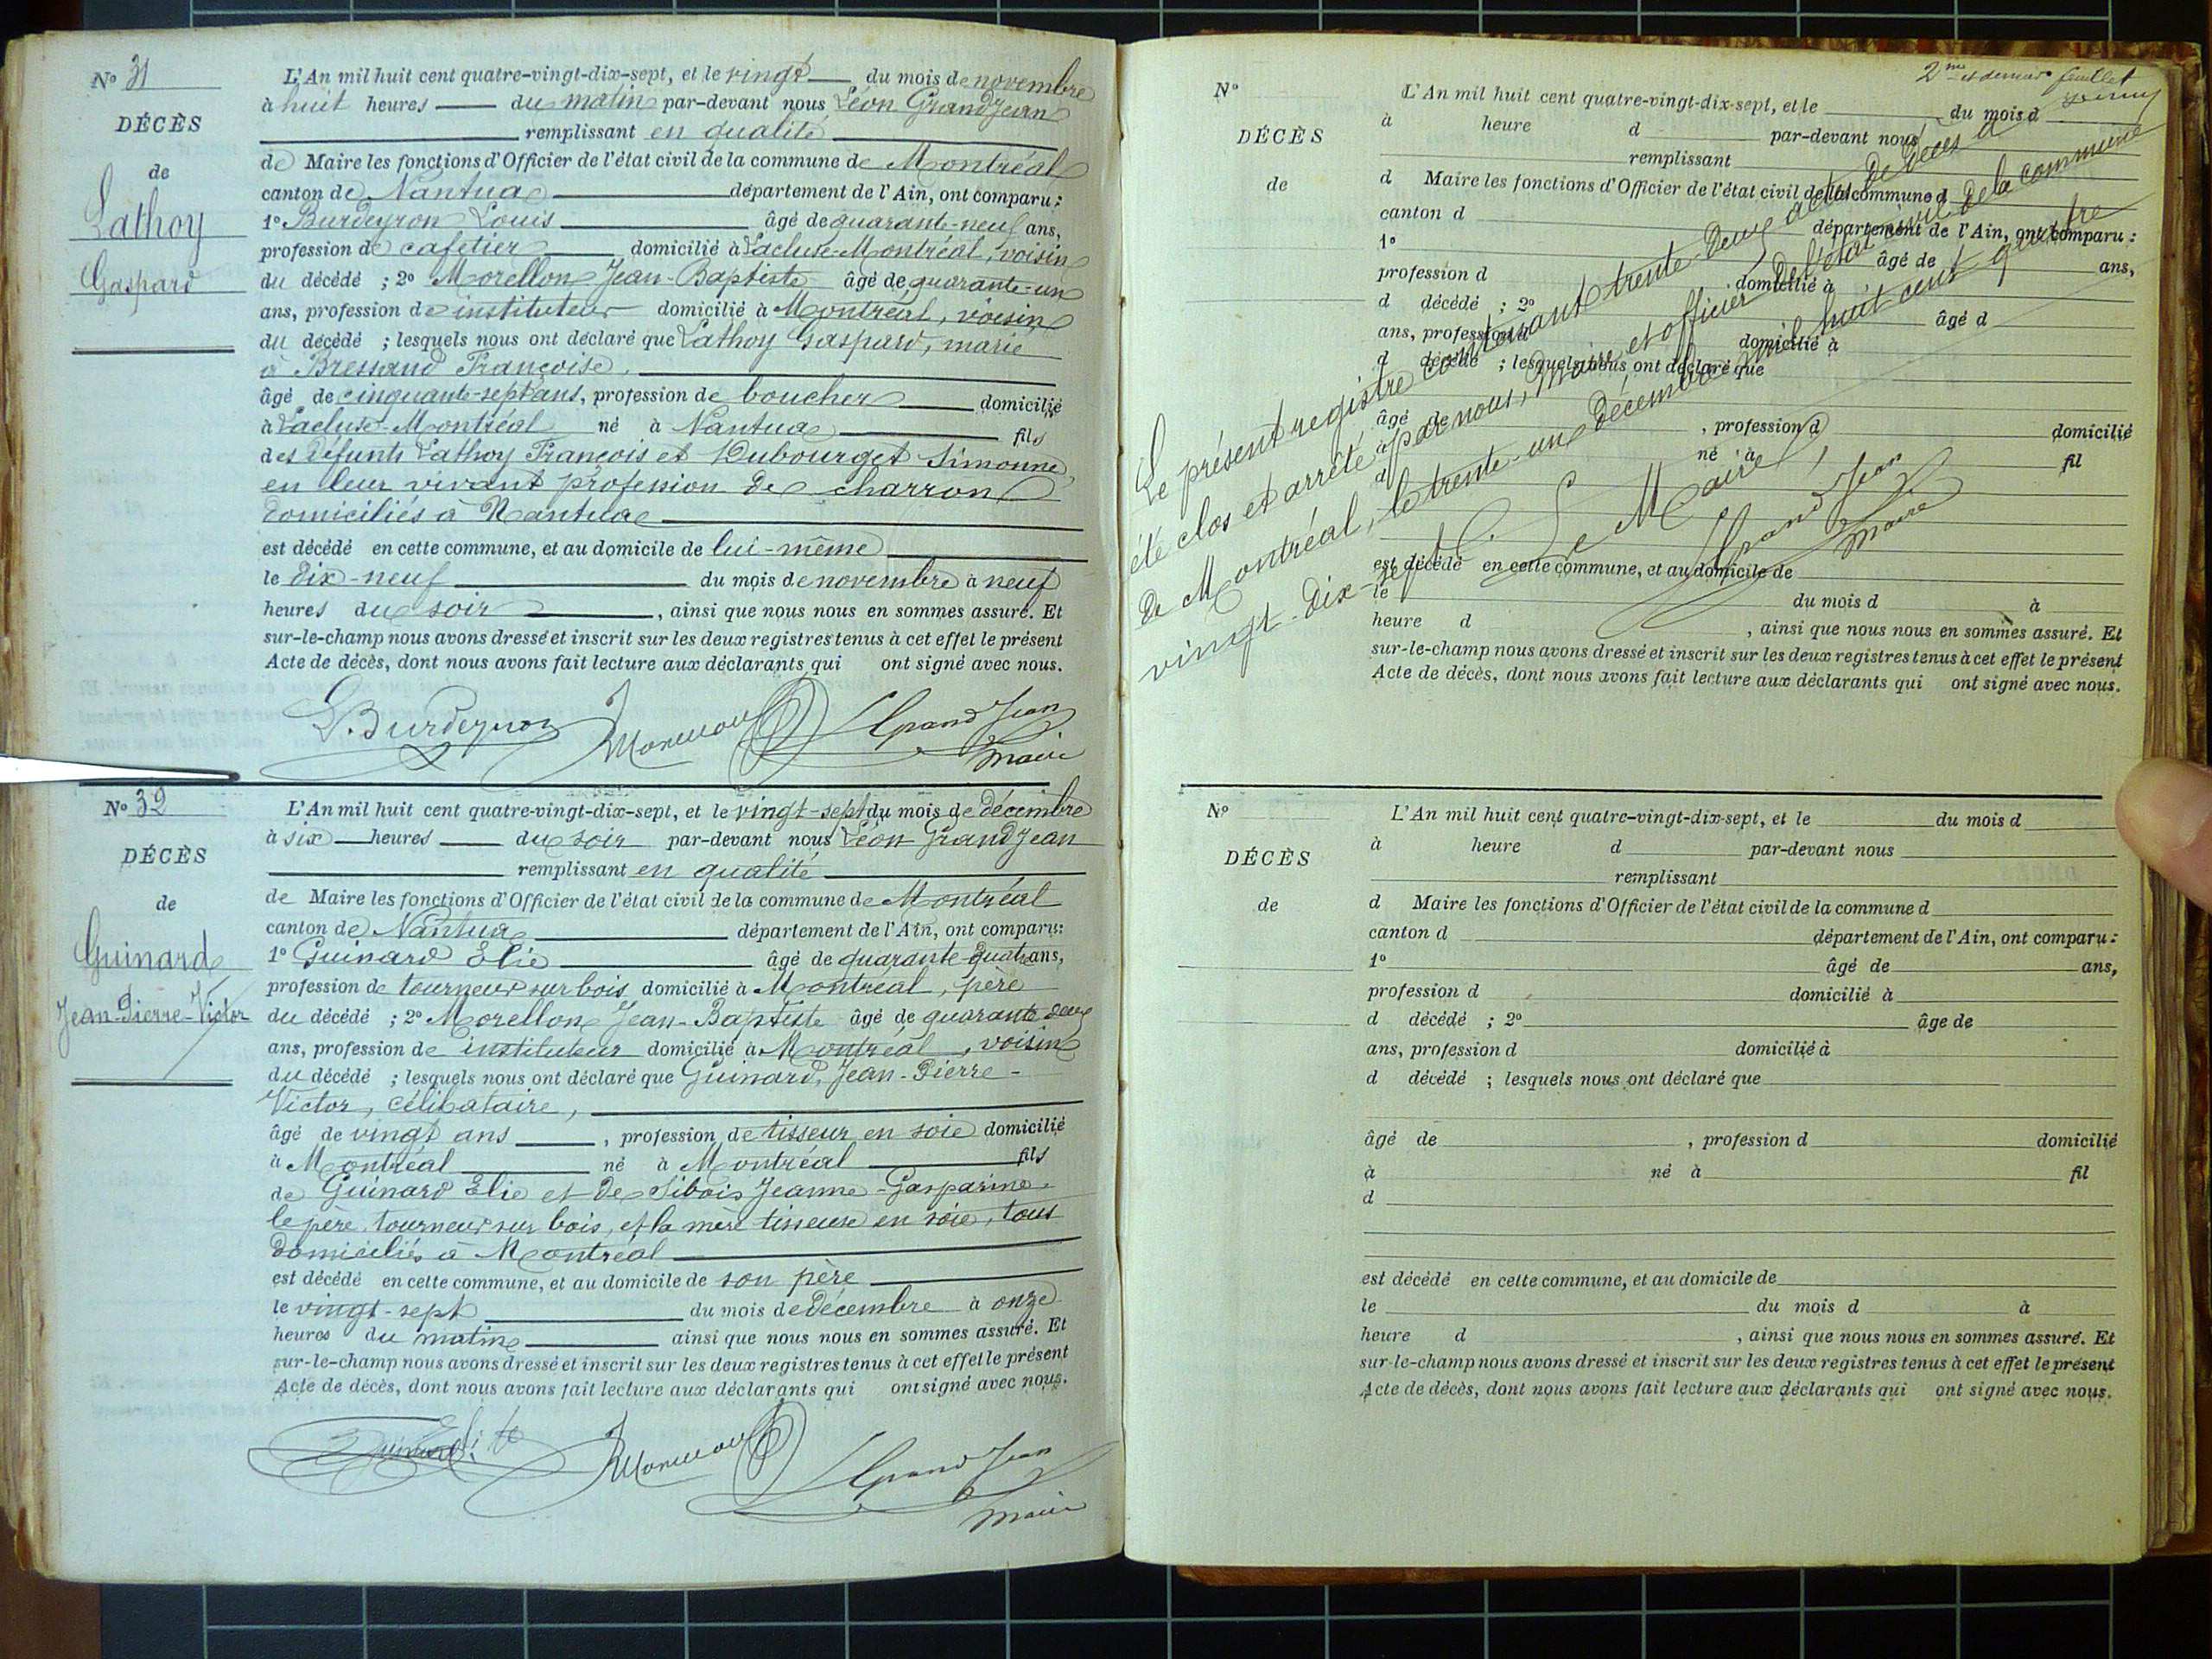 N° 31
DÉCÈS
de
Lathoy
Gaspard
L'An mil huit cent quatre-vingt-dix-sept, et le vingt du mois de novembre
à huit heures du matin par-devant nous Léon Grandjean
remplissant en qualité
de Maire les fonctions d'Officier de l'état civil de la commune de Montréal
canton de Nantua département de l'Ain, ont comparu :
1° Burdeyron Louis âgé de quarante-neuf ans,
profession de cafetier domicilié à Lacluse-Montréal, voisin
du décédé ; 2° Morellon Jean-Baptiste âgé de quarante-un
ans, profession de instituteur domicilié à Montréal, voisin
du décédé ; lesquels nous ont déclaré que Lathoy Gaspard, marié
à Bressand Françoise,
âgé de cinquante-sept ans, profession de boucher domicilié
à Lacluse-Montréal né à Nantua fils
des défunts Lathoy François et Dubourget Simonne,
en leur vivant profession de charron
domiciliés à Nantua
est décédé en cette commune, et au domicile de lui-même
le dix-neuf du mois de novembre à neuf
heures du soir, ainsi que nous nous en sommes assuré. Et
sur-le-champ nous avons dressé et inscrit sur les deux registres tenus à cet effet le présent
Acte de décès, dont nous avons fait lecture aux déclarants qui ont signé avec nous.
L. Burdeyron Morellon Grandjean
Maire
N° 32
DÉCÈS
de
Guinard
Jean-Pierre-Victor
L'An mil huit cent quatre-vingt-dix-sept, et le vingt-sept du mois de décembre
à six heures du soir par-devant nous Léon Grandjean
remplissant en qualité
de Maire les fonctions d'Officier de l'état civil de la commune de Montréal
canton de Nantua département de l'Ain, ont comparu :
1° Guinard Elie âgé de quarante-quatre ans,
profession de tourneur sur bois domicilié à Montréal, père
du décédé ; 2° Morellon Jean-Baptiste âgé de quarante-deux
ans, profession de instituteur domicilié à Montréal, voisin
du décédé ; lesquels nous ont déclaré que Guinard, Jean-Pierre-
Victor, célibataire,
âgé de vingt ans, profession de tisseur en soie domicilié
à Montréal né à Montréal fils
de Guinard Elie et de Sibois Jeanne-Gasparine
le père tourneur sur bois, et la mère tisseuse en soie, tous
domiciliés à Montréal
est décédé en cette commune, et au domicile de son père
le vingt-sept du mois de décembre à onze
heures du matin ainsi que nous nous en sommes assuré. Et
sur-le-champ nous avons dressé et inscrit sur les deux registres tenus à cet effet le présent
Acte de décès, dont nous avons fait lecture aux déclarants qui ont signé avec nous.
Guinard Elie Morellon Grandjean
Maire
2me et dernier feuillet
N°
DÉCÈS
de
L'An mil huit cent quatre-vingt-dix-sept, et le du mois d
à heure d par-devant nous
remplissant
d Maire les fonctions d'Officier de l'état civil de la commune d
canton d département de l'Ain, ont comparu :
1° âgé de ans,
profession d domicilié à
d décédé ; 2° âgé d
ans, profession d domicilié à
d décédé ; lesquels nous ont déclaré que
âgé de , profession d domicilié
à né à fil
d
est décédé en cette commune, et au domicile de
le du mois d à
heure d , ainsi que nous nous en sommes assuré. Et
sur-le-champ nous avons dressé et inscrit sur les deux registres tenus à cet effet le présent
Acte de décès, dont nous avons fait lecture aux déclarants qui ont signé avec nous.
Le présent registre contenant trente-deux actes de décès a
été clos et arrêté par nous, Maire et officier de l'état civil de la commune
de Montréal, le trente-un décembre mil huit cent quatre
vingt-dix-sept.
Le Maire,
Grandjean
Maire
N°
DÉCÈS
de
L'An mil huit cent quatre-vingt-dix-sept, et le du mois d
à heure d par-devant nous
remplissant
d Maire les fonctions d'Officier de l'état civil de la commune d
canton d département de l'Ain, ont comparu :
1° âgé de ans,
profession d domicilié à
d décédé ; 2° âge de
ans, profession d domicilié à
d décédé ; lesquels nous ont déclaré que
âgé de , profession d domicilié
à né à fil
d
est décédé en cette commune, et au domicile de
le du mois d à
heure d , ainsi que nous nous en sommes assuré. Et
sur-le-champ nous avons dressé et inscrit sur les deux registres tenus à cet effet le présent
Acte de décès, dont nous avons fait lecture aux déclarants qui ont signé avec nous.